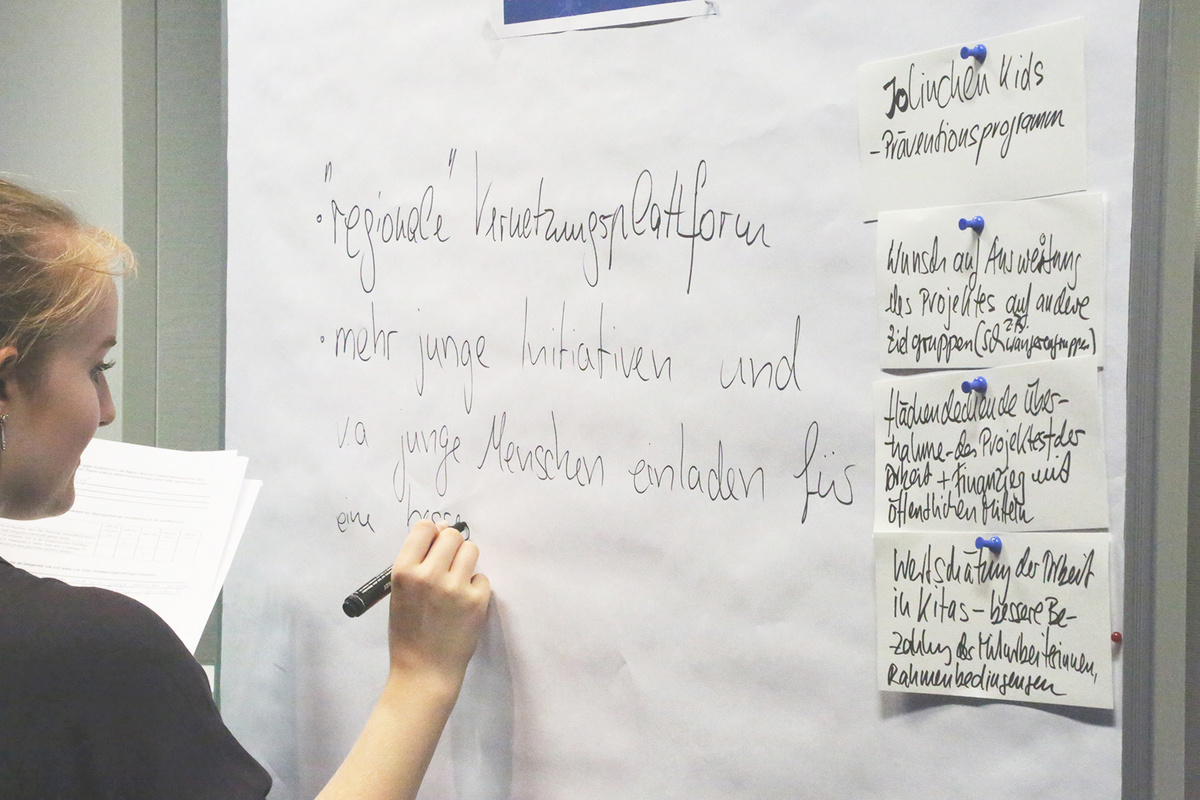 • "regionale" Vernetzungsplattform
• mehr junge Initiativen und
va junge Menschen einladen für
eine besse
JoLinchen Kids
- Präventionsprogramm
Wunsch auf Ausweitung
des Projektes auf andere
Zielgruppen (z.B. Schwangerengruppen)
flächendeckende Über-
nahme des Projektes der
Arbeit + Finanzierg mit
öffentlichen Mitteln
Wertschätzung der Arbeit
in Kitas - bessere Be-
zahlung des Mitarbeiterinnen,
Rahmenbedingungen